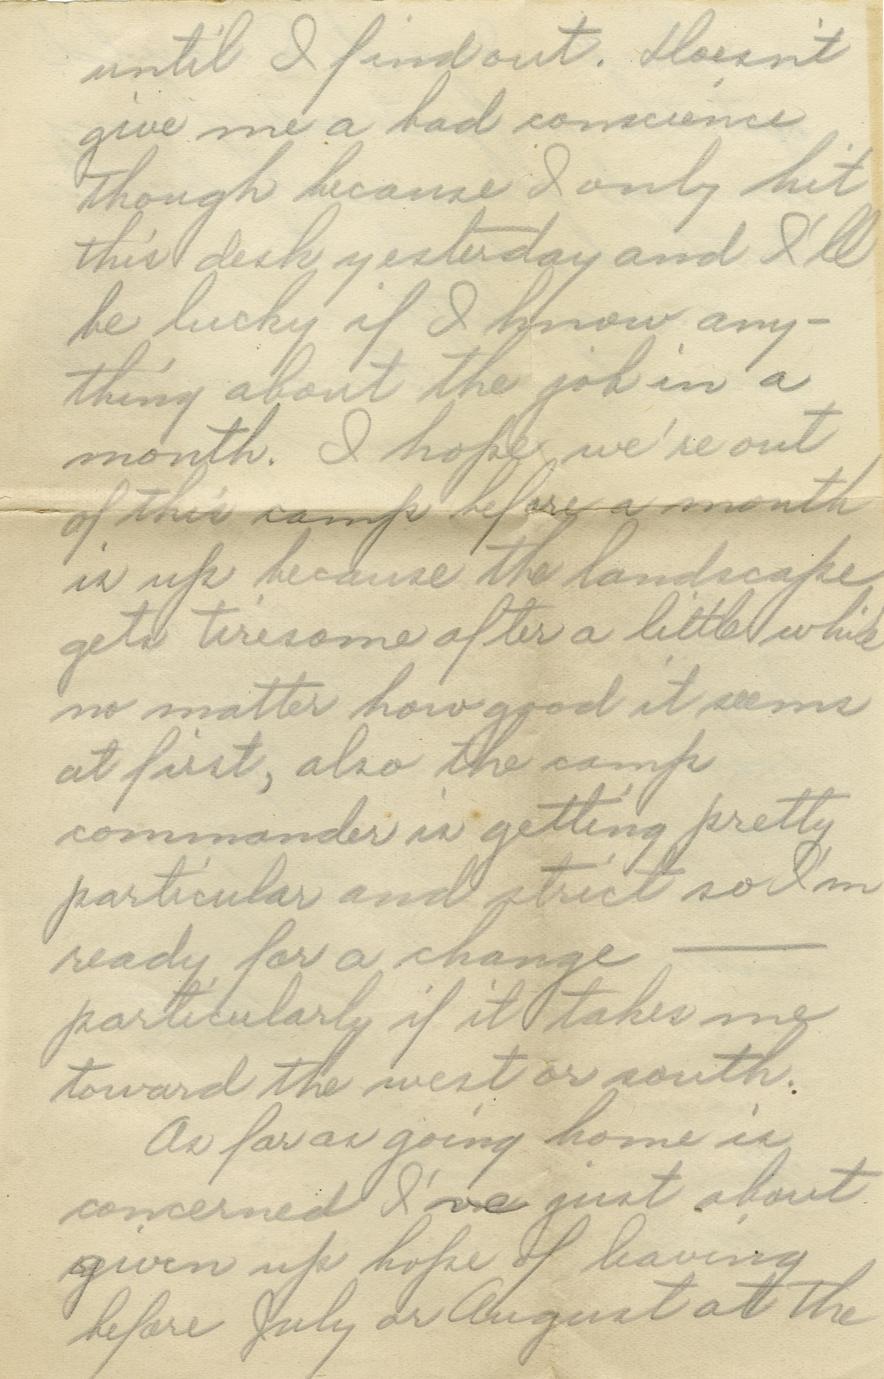 until I find out. Doesn't
give me a bad conscience
though because I only hit
this desk yesterday and I'll
be lucky if I know any-
thing about the job in a
month. I hope we're out
of this camp before a month
is up because the landscape
gets tiresome after a little while
no matter how good it seems
at first, also the camp
commander is getting pretty
particular and strict so I'm
ready for a change ———
particularly if it takes me
toward the west or south.
As far as going home is
concerned I've just about
given up hope of leaving
before July or August at the